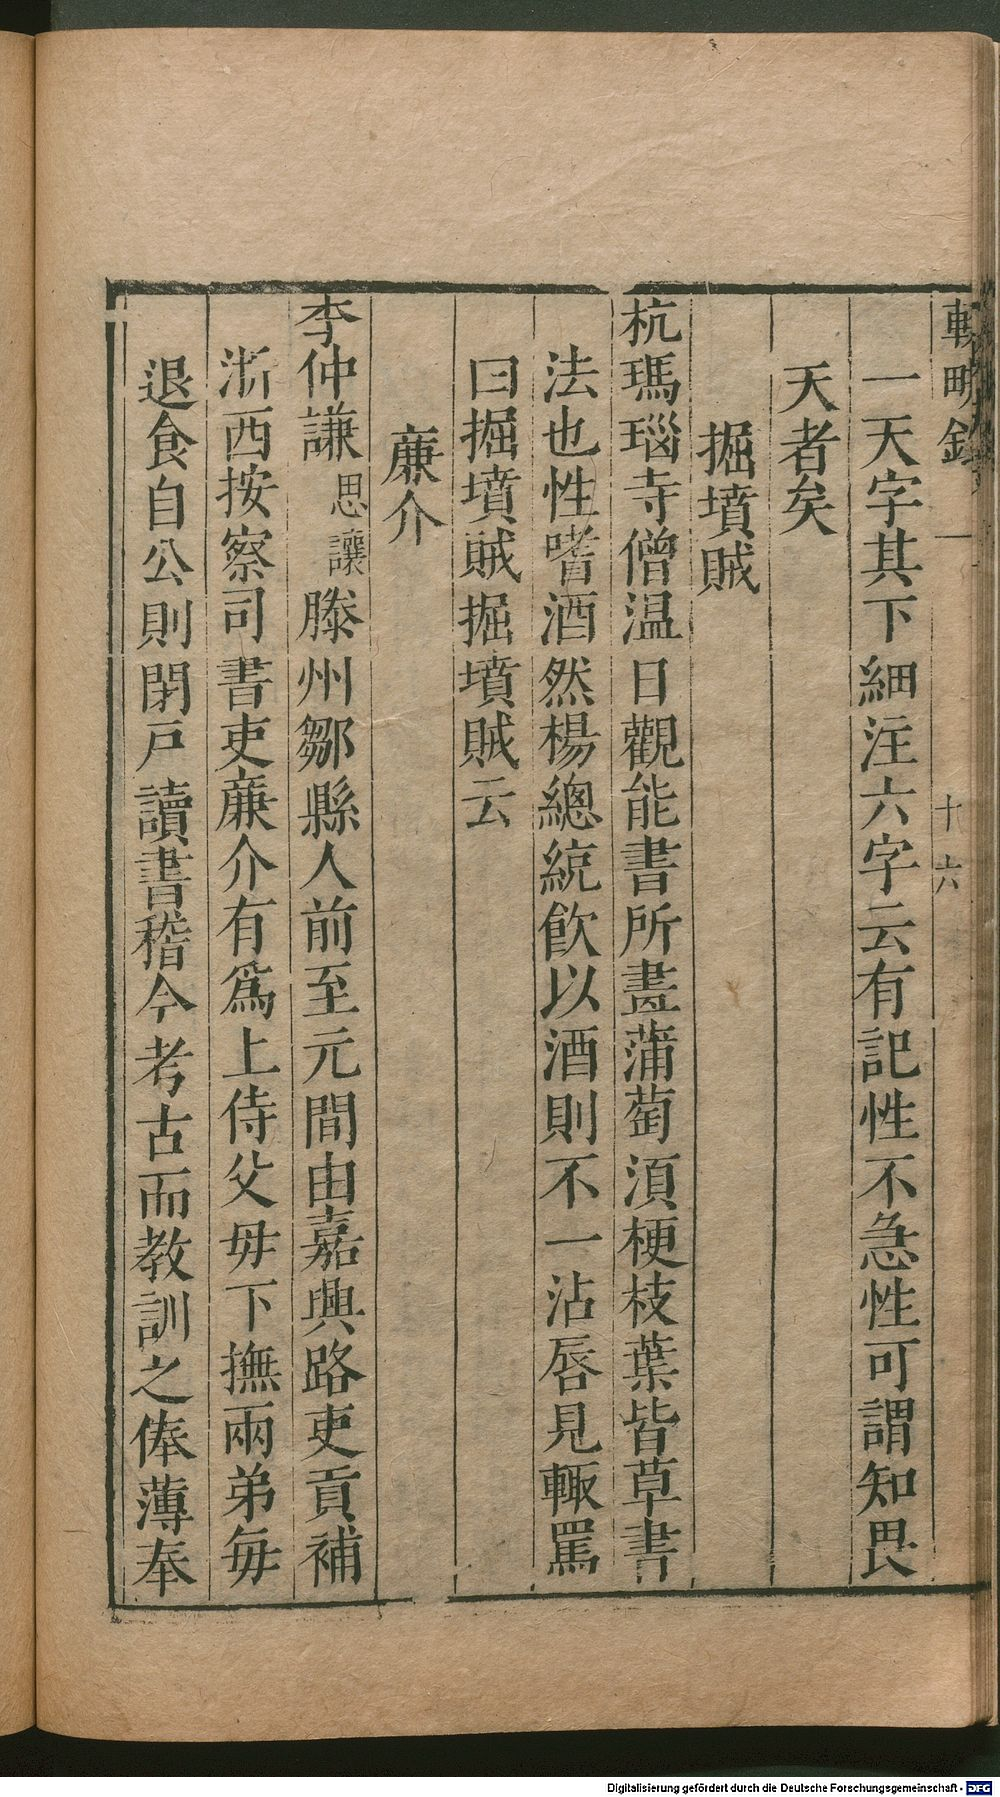 輟畊錄 一 十六
一天字其下細注六字云有記性不急性可謂知畏
天者矣
掘墳賊
杭瑪瑙寺僧温日觀能書所畫蒲萄須梗枝葉皆草書
法也性嗜酒然楊總統飲以酒則不一沾唇見輒罵
曰掘墳賊掘墳賊云
廉介
李仲謙思讓滕州鄒縣人前至元間由嘉興路吏貢補
浙西按察司書吏廉介有爲上侍父母下撫兩弟每
退食自公則閉戸讀書稽今考古而教訓之俸薄奉
Digitalisierung gefördert durch die Deutsche Forschungsgemeinschaft - DFG